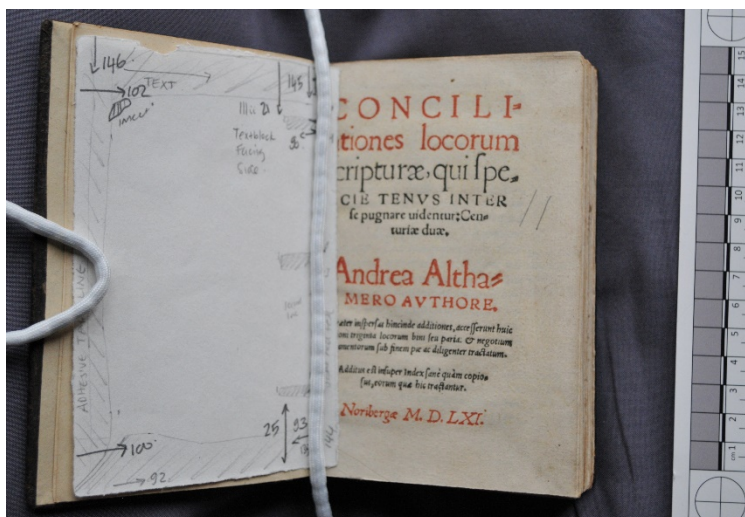 146
TEXT
102
145
Textblock
Facing
Side
ADHESIVE
LINE
25
93
100
92
CONCILI=
tiones locorum
cripturæ, qui ſpe=
CIE TENVS INTER
ſe pugnare uidentur: Cen=
turiæ duæ.
Andrea Altha=
MERO AVTHORE.
inſperſas hincinde additiones, acceſſerunt huic
triginta locorum bini ſeu paria. & negotium
ſub finem pie ac diligenter tractatum.
Additus eſt inſuper Index ſanè quàm copio=
ſus, eorum quæ hic tractantur.
Noribergæ M. D. LXI.
11
15
14
13
12
11
10
9
8
7
6
5
4
3
2
cm 1